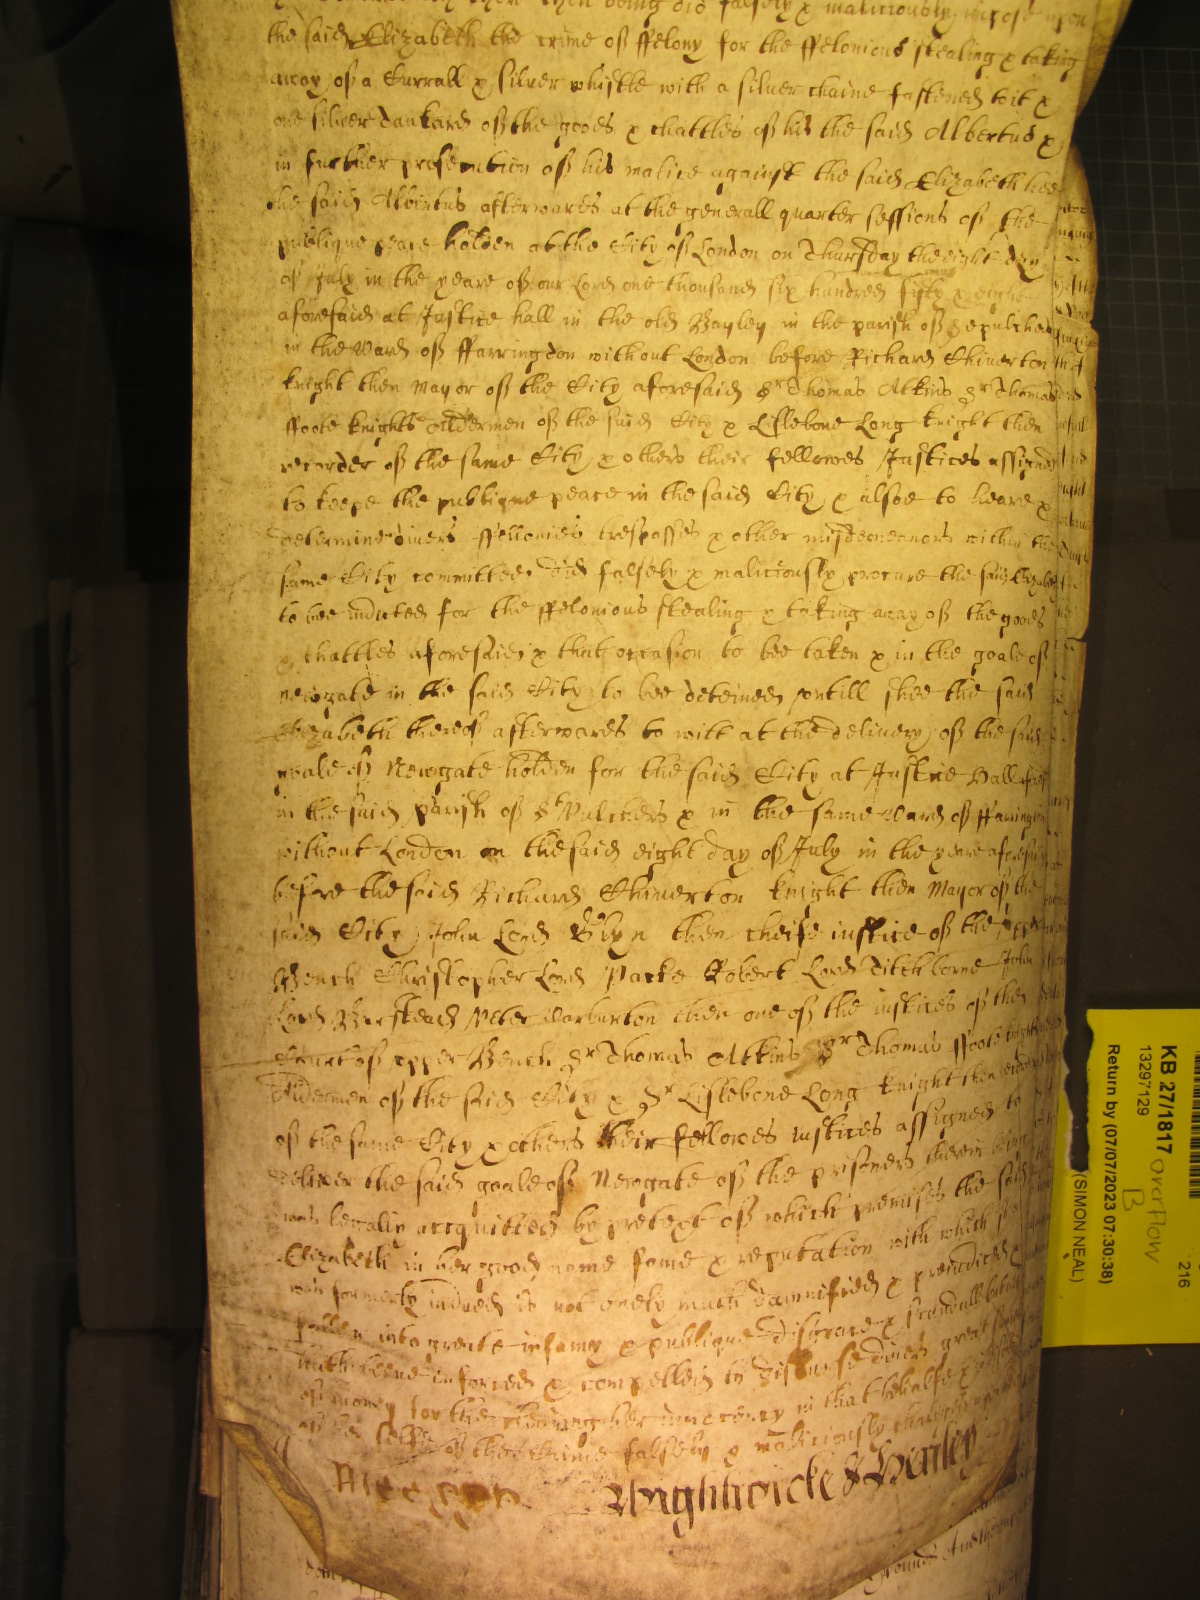 then being did falsely & maliciously impose upon
the said Elizabeth the crime of ffelony for the ffelonious stealing & taking
away of a Currall & silver whistle with a silver chaine fastened to it &
one silver tankard of the goods & chattles of his the said Albertus &
in further prosecution of his malice against the said Elizabeth hee
the said Albertus afterwards at the generall quarter sessions of the
publique peace holden at the City of London on Thursday the eight day
of July in the yeare of our Lord one thousand six hundred fifty & eight
aforesaid at Justice hall in the old Bayley in the parish of Sepulchers
in the Ward of ffarringdon without London before Richard Chiverton
knight then Mayor of the City aforesaid Sr Thomas Atkins Sr Thomas
ffoote knights Aldermen of the said City & Lislebone Long knight then
recorder of the same City & others their fellowes Justices assigned
to keepe the publique peace in the said City & alsoe to heare &
determine divers ffellonies trespasses & other misdemeanors within the
same City committed did falsely & maliciously procure the said Elizabeth
to bee indicted for the ffelonious stealing & taking away of the goods
& chattles aforesaid & that occasion to bee taken & in the goale of
newgate in the said City to bee deteined untill shee the said
Elizabeth thereof afterwards to witt at the delivery of the said
goale of Newgate holden for the said City at Justice Hall
in the said parish of St Pulchers & in the same Ward of ffarringdon
without London on the said eight day of July in the yeare aforesaid
before the said Richard Chiverton knight then Mayor of the
said City John Lord Glyn then cheife justice of the upper
Bench Christopher Lord Packe Robert Lord Titchborne John
Lord Barkstead Peter Warburton then one of the justices of the
Court of upper Bench Sr Thomas Atkins Sr Thomas ffoote knights
Aldermen of the said City & Sr Lislebone Long knight then recorder
of the same City & others their fellowes justices assigned to
deliver the said goale of Newgate of the prisoners therein being
was legally acquitted by pretext of which premises the said
Elizabeth in her good name fame & reputation with which shee
was formerly indued is not onely much damnified & prejudiced &
fallen into greate infamy & publique disgrace & scandall but
hath beene inforced & compelled to disburse divers great somes
of money for the clearing her innocency in that behalfe &
of her selfe of the crime falsely & maliciously charged upon
Wightwicke & Henley
KB 27/1817 overflow
B
13297129
Return by (07/07/2023 07:30:38)
(SIMON NEAL)
216